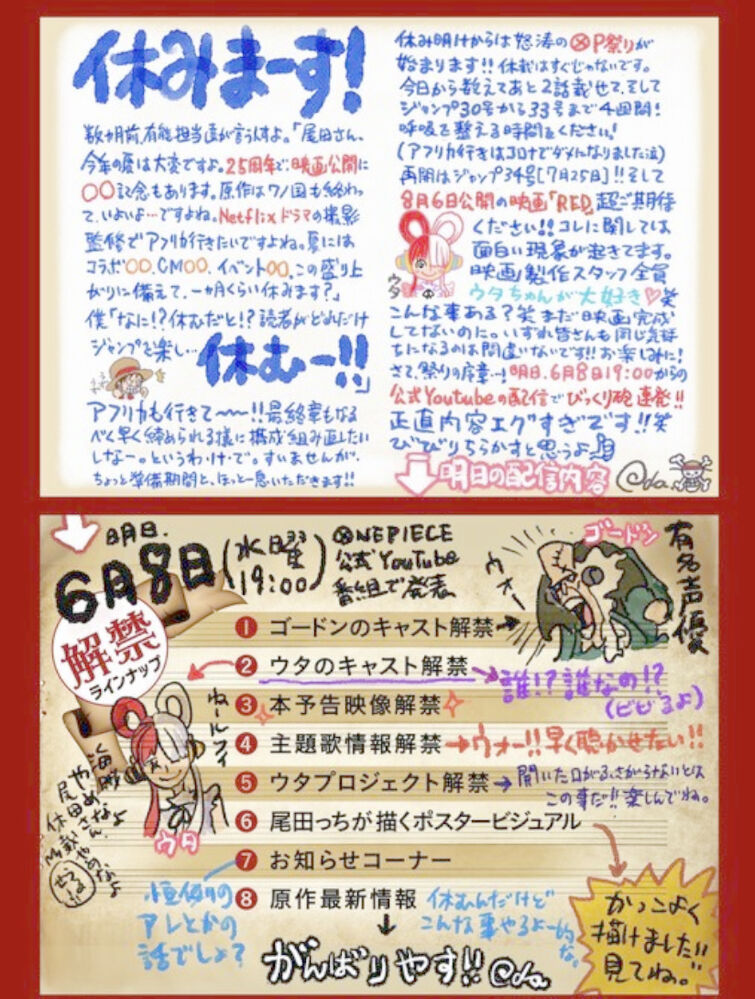 休みまーす!
数か月前、有能担当直が言うんすよ。「尾田さん、
今年の夏は大変ですよ。25周年で、映画公開に
〇〇記念もあります。原作はワノ国も終わっ
て、いよいよ…ですよね。Netflixドラマの撮影
監修でアフリカ行きたいですよね。夏には
コラボ〇〇、CM〇〇、イベント〇〇。この盛り上
がりに備えて、一か月くらい休みます?」
僕「なに!?休むだと!?読者がどれだけ
ジャンプを楽し…
休むー!!」
アフリカも行きて〜〜!!最終章もなる
べく早く締められる様に構成組み直したい
しなー。というわけで。すいませんが、
ちょっと準備期間と、ほっと一息いただきます!!
休み明けからは怒涛のOP祭りが
始まります!!休載はすぐじゃないです。
今日から数えてあと2話載せて、そして
ジャンプ30号から33号まで4週間!
呼吸を整える時間をください!
(アフリカ行きはコロナでダメになりました泣)
再開はジャンプ34号[7月25日]!!そして
8月6日公開の映画「RED」超ご期待
ください!!コレに関しては
面白い現象が起きてます。
映画製作スタッフ全員
ウタちゃんが大好き♡笑
ウタ
こんな事ある?笑 まだ映画完成
してないのに。いずれ皆さんも同じ気持
ちになるのは間違いないです!!お楽しみに!
さて、祭りの序章…!明日、6月8日19:00からの
公式Youtubeの配信でびっくり砲連発!!
正直内容エグすぎです!!笑
びびりちらかすと思うよ
明日の配信内容
Oda
明日、
6月8日(水曜 19:00)
ONEPIECE
公式YouTube
番組で発表
ゴードン
有名声優
ウォー
解禁
ラインナップ
1 ゴードンのキャスト解禁
2 ウタのキャスト解禁
誰!?誰なの!?
(ビビるよ)
3 本予告映像解禁
4 主題歌情報解禁→ウォー!!早く聴かせたい!!
5 ウタプロジェクト解禁→開いた口がふさがらないとは
この事だ!!楽しんでね。
6 尾田っちが描くポスタービジュアル
7 お知らせコーナー
8 原作最新情報
ねールフィ
ウタ
海賊
やめなよ
尾田さん
休載やめなよ
恒例の
アレとかの
話でしょ?
休むんだけど
こんな事やるよー的な。
かっこよく
描けました!!
見てね。
がんばりやす!! Oda